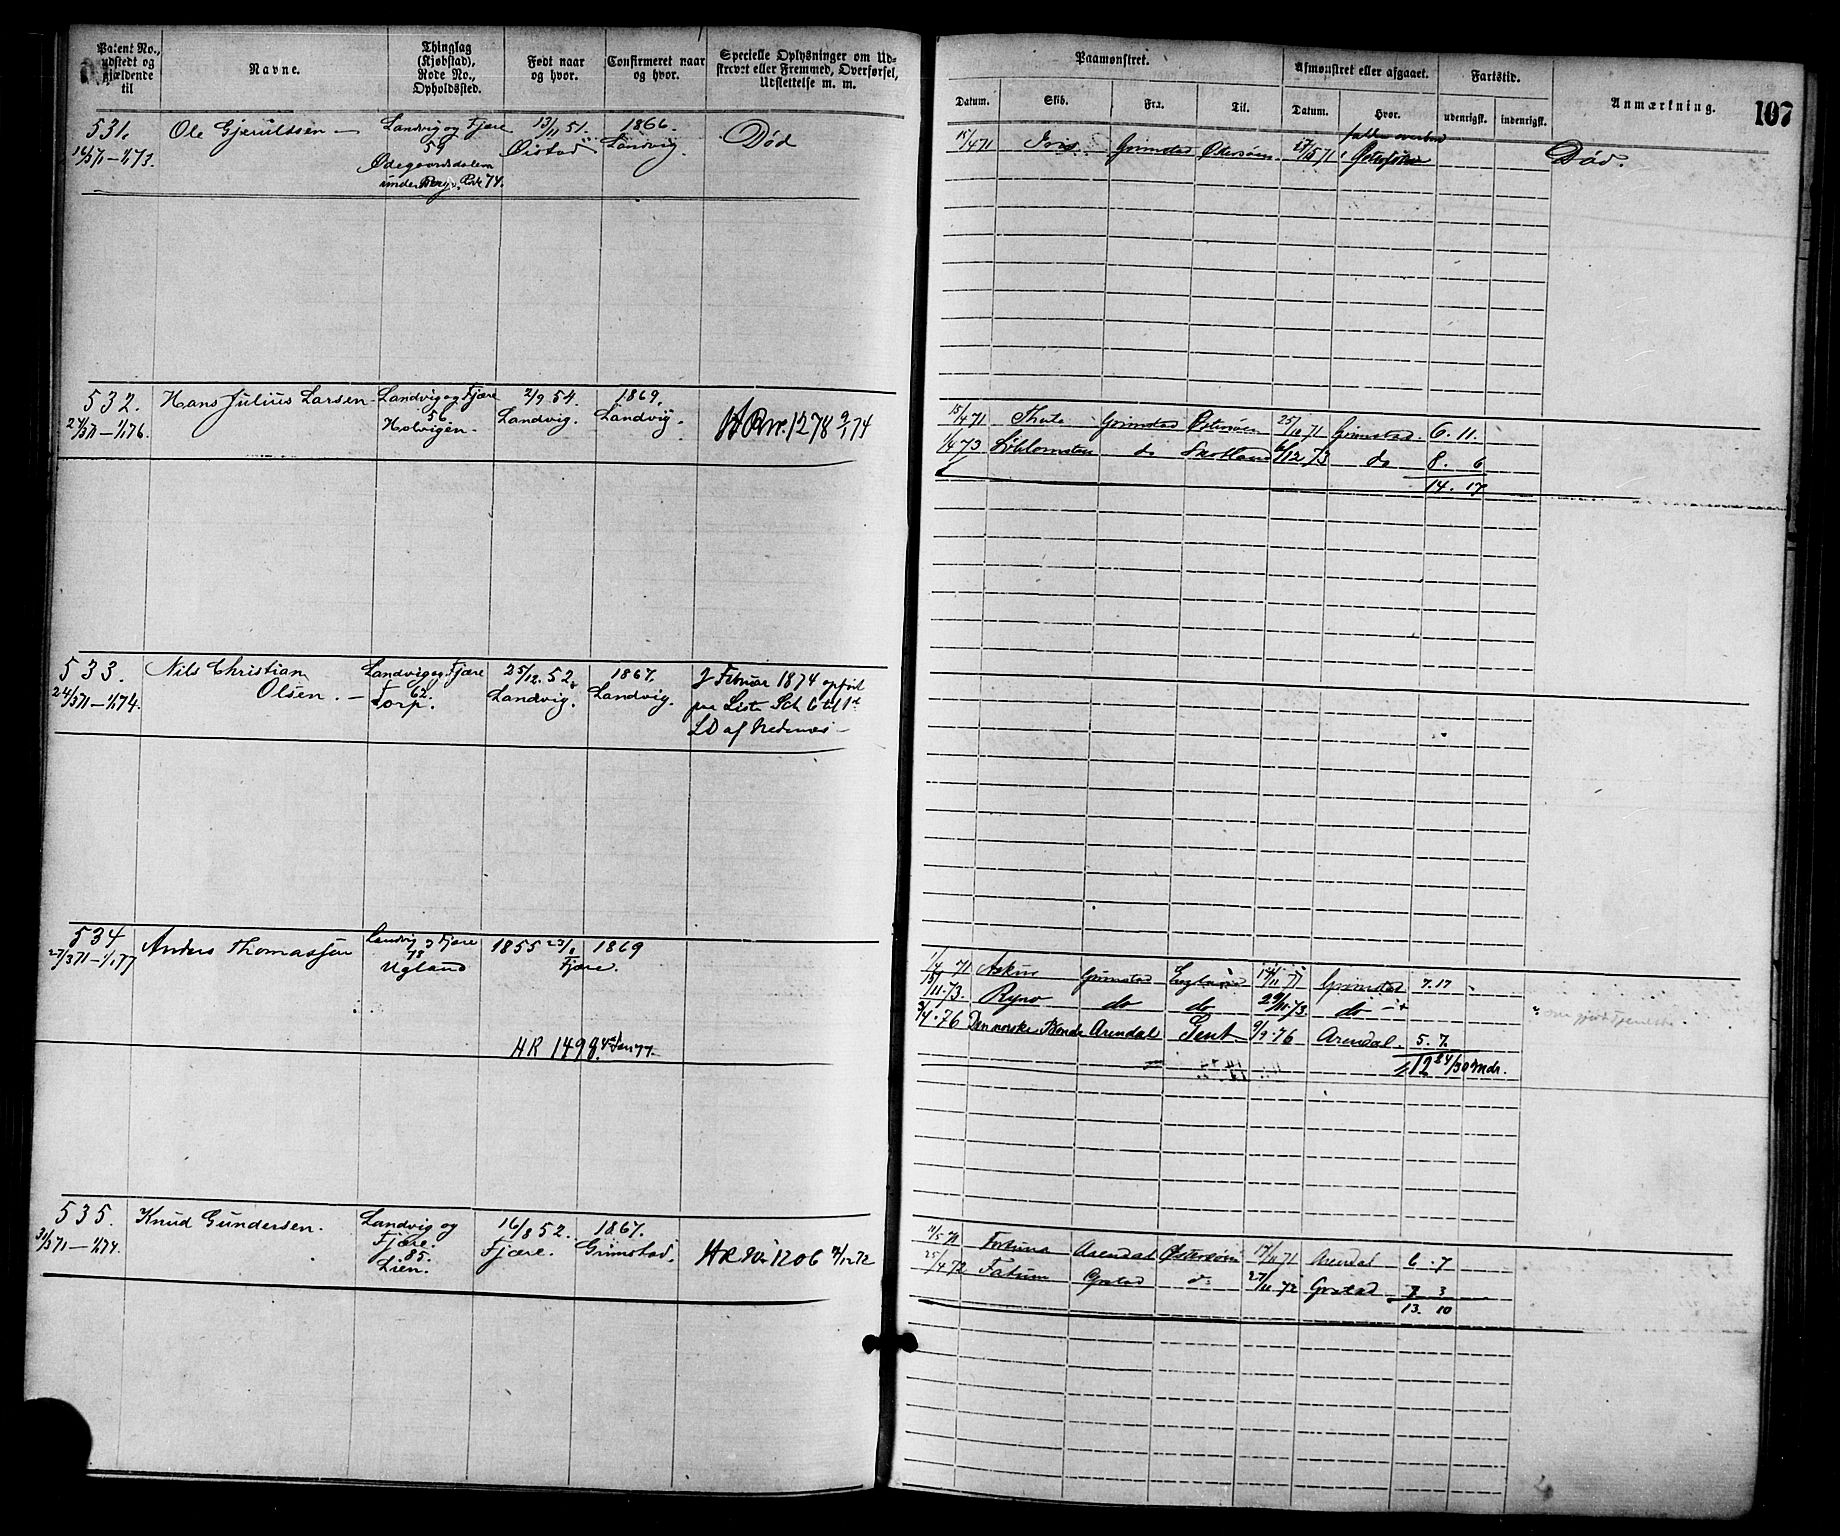 Patent No., udstedt og gjældende til
Navne.
Thinglag (Kjøbstad), Rode No., Opholdssted.
Født naar og hvor.
Confirmeret naar og hvor.
Specielle Oplysninger om Udskrevet eller Fremmed, Overførsel, Udslettelse m. m.
Paamønstret.
Datum. Skib. Fra. Til.
Afmønstret eller afgaaet.
Datum. Hvor.
Fartstid.
udenrigsk. indenrigsk.
Anmærkning.
107
531. Ole Gjerulfsen Landvig og Fjære 13/11 51. 1866. Død
59 Øistad Landvig.
Ødegaardsdalen
under Berge. 74.
15/4 71 Iris Grimstad Østersøen falden overbord
i Østersøen Død.
532. Hans Julius Larsen Landvig og Fjære 2/9 54. 1869.
27/3 71 – 1/1 76. 56 Landvig. Landvig.
Holvigen. HR nr. 1278 9/1 74
15/4 71 Thule Grimstad Østersøen 25/10 71 Grimstad 6. 11.
1/4 73 do Skotland 6/12 73 do 8. 6
14. 17
533. Nils Christian Landvig og Fjære 25/12. 52. 1867. I Februar 1874 opført
24/3 71 – 1/1 74. Olsen. 62. Landvig. Landvig. paa Liste Sch 6 til 1st
Torp. LD af Nedenæs
534 Anders Thomassen Landvig og Fjære 1855 23/8 1869
27/3 71 – 1/1 77 78 Fjære.
Ugland
HR 1498. 4de Jan 77.
1/4 71 Askur Grimstad England 14/11 71 Grimstad 7. 17
15/11. 73. do do 29/11. 73 do
3/4. 76 Den norske Bonde Arendal Gent 9/9. 76 Arendal. 5. 7.
12 24/30 Mdr.
535. Knud Gundersen. Landvig og 16/8 52. 1867.
31/3 71 – 1/1 74. Fjære. Fjære. Grimstad.
85. HR No 1206 /12 72
Lien.
11/5 71 Fortuna Arendal Østersøen 17/11 71 Arendal 6. 7
25/4 72 Fatum Grstad do 27/11 72 Grstad 7 3
13. 10